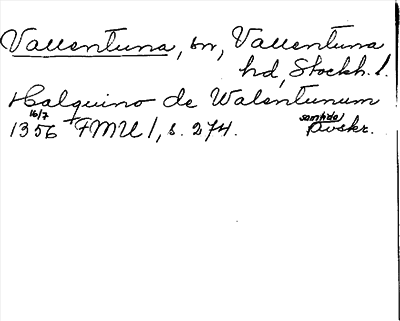 Vallentuna, sn, Vallentuna
hd, Stockh. l.
Halquino de Walentunum
16/7
1356 FMU 1, s. 274. samtida avskr.